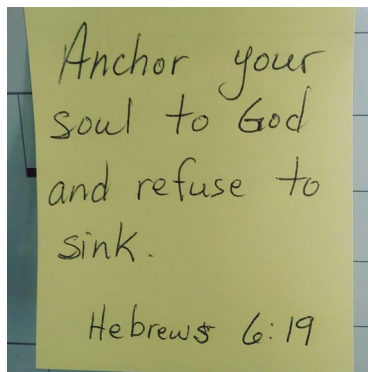 Anchor your
soul to God
and refuse to
sink.
Hebrews 6:19